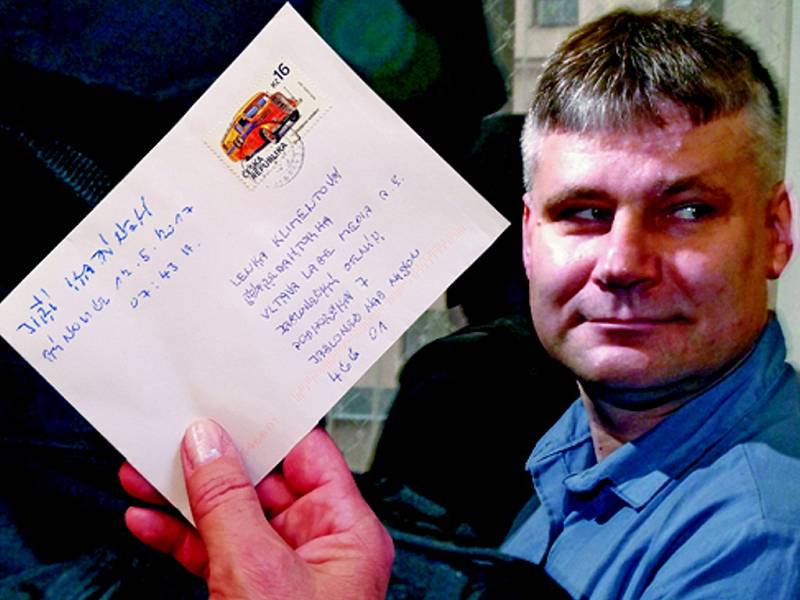 Kč 16
ČESKÁ
REPUBLIKA
JIŘÍ
12.5.2017
07:43 H.
LENKA KLIMENTOVÁ
ŠÉFREDAKTORKA
VLTAVA LABE MEDIA A.S.
JABLONECKÝ DENÍK
PODHORSKÁ 7
JABLONEC NAD NISOU
466 01